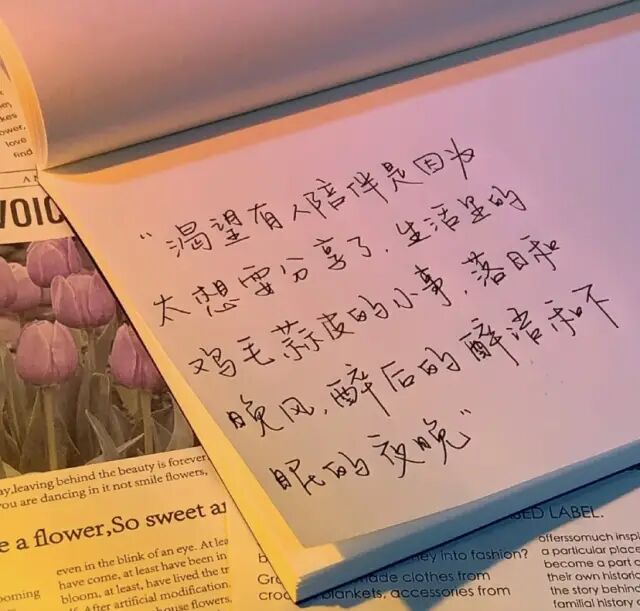 "渴望有人陪伴是因为
太想要分享了,生活里的
鸡毛蒜皮的小事,落日和
晚风,醉后的醉语和不
眠的夜晚"
ower,
love
find
VOIC
ay,leaving behind the beauty is forever
you are dancing in it not smile flowers,
e a flower,So sweet ar
even in the blink of an eye. At lea
have come, at least have been in
bloom, at least, have lived the tr
After artificial modification.
house flowers
ooming
ED LABEL.
ey into fashion?
made clothes from
blankets, accessories from
offerssomuch inspi
a particular place
become a part o
their own historic
the story behind
familial history